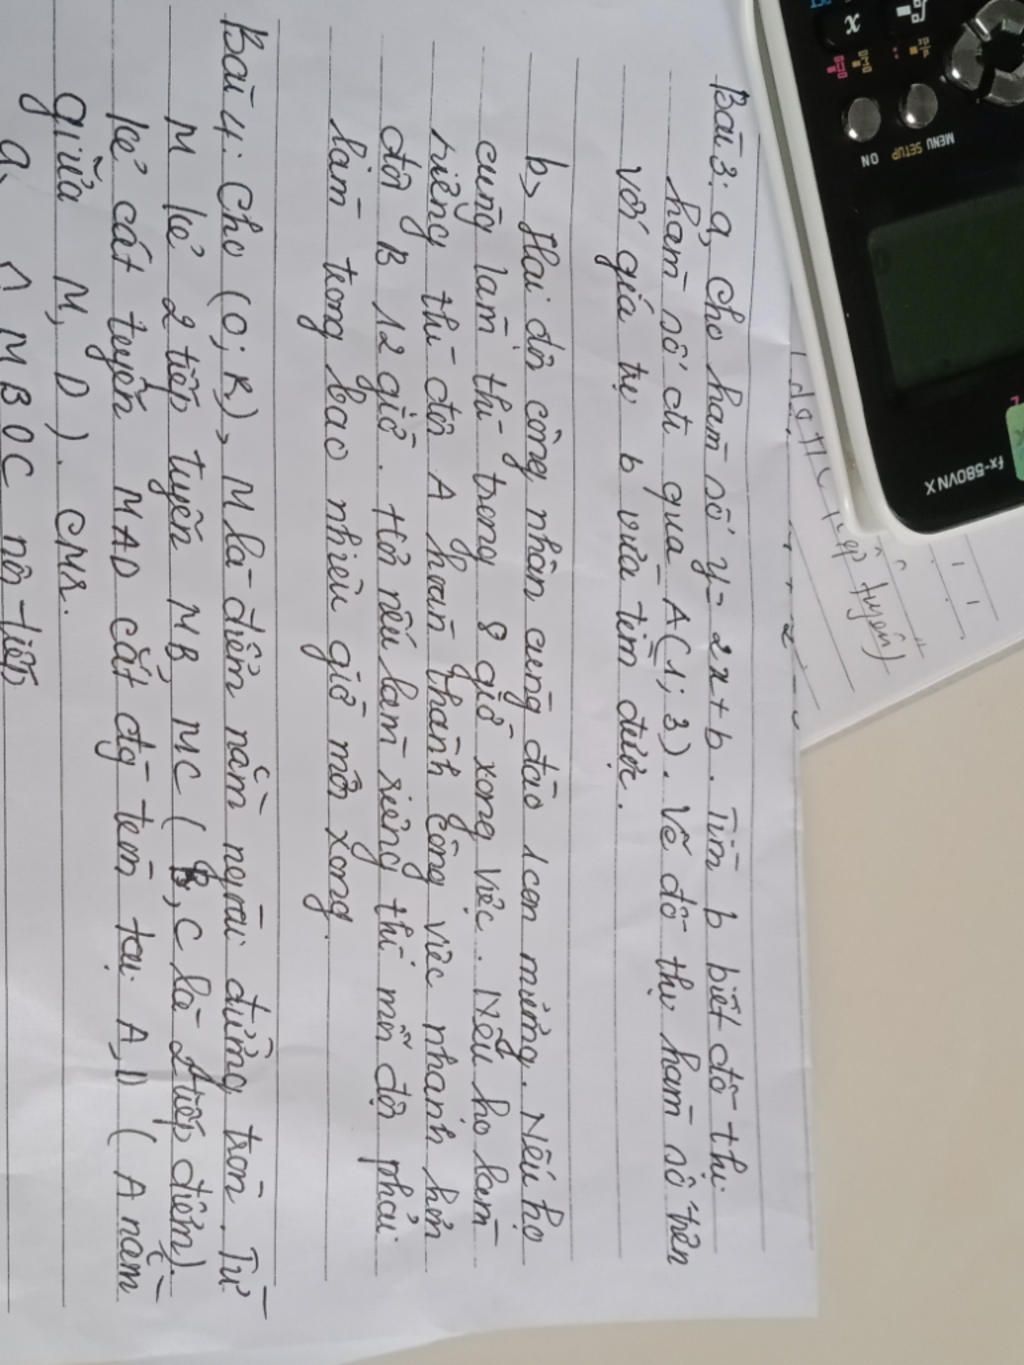 Bài 3: a, Cho hàm số y = 2x + b. Tìm b biết đồ thị
hàm số đi qua A(1; 3). Vẽ đồ thị hàm số trên
với giá trị b vừa tìm được.
b, Hai đội công nhân cùng đào 1 con mương. Nếu họ
cùng làm thì trong 8 giờ xong việc. Nếu họ làm
riêng thì đội A hoàn thành công việc nhanh hơn
đội B 12 giờ. Hỏi nếu làm riêng thì mỗi đội phải
làm trong bao nhiêu giờ mới xong.
Bài 4: Cho (O; R), M là điểm nằm ngoài đường tròn. Từ
M kẻ 2 tiếp tuyến MB, MC (B, C là 2 tiếp điểm).
kẻ cát tuyến MAD cắt đg tròn tại A, D (A nằm
giữa M, D). CMR.
a, MBOC nội tiếp
tuyến)
fx-580VN X
MENU SETUP
ON
x